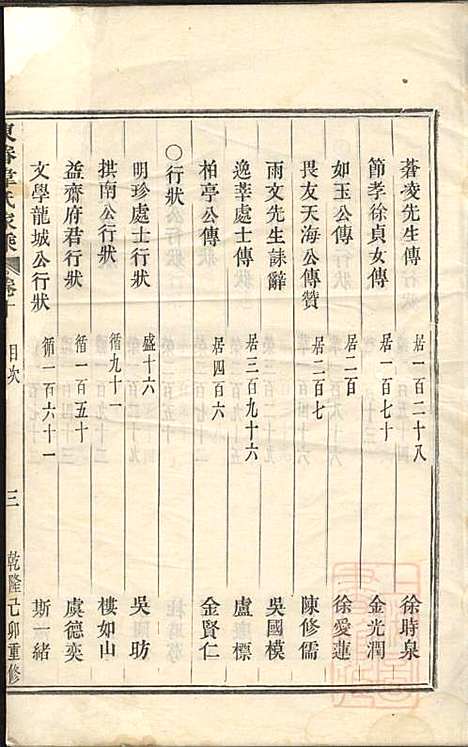 蒼凌先生傳 居一百二十八 徐時泉
節孝徐貞女傳 居一百七十 金光潤
如玉公傳 居二百 徐愛蓮
畏友天海公傳贊 居二百七 陳修儒
雨文先生誄辭 吳國模
逸莘處士傳 居三百九十六 盧標
柏亭公傳 居四百六 金賢仁
○行狀
明珍處士行狀 盛十六 吳昉
拱南公行狀 循九十一 樓如山
益齋府君行狀 循一百五十 虞德奕
文學龍城公行狀 循一百六十一 斯一緒
東眷韋氏家乘 卷十 目次 三 乾隆己卯重修